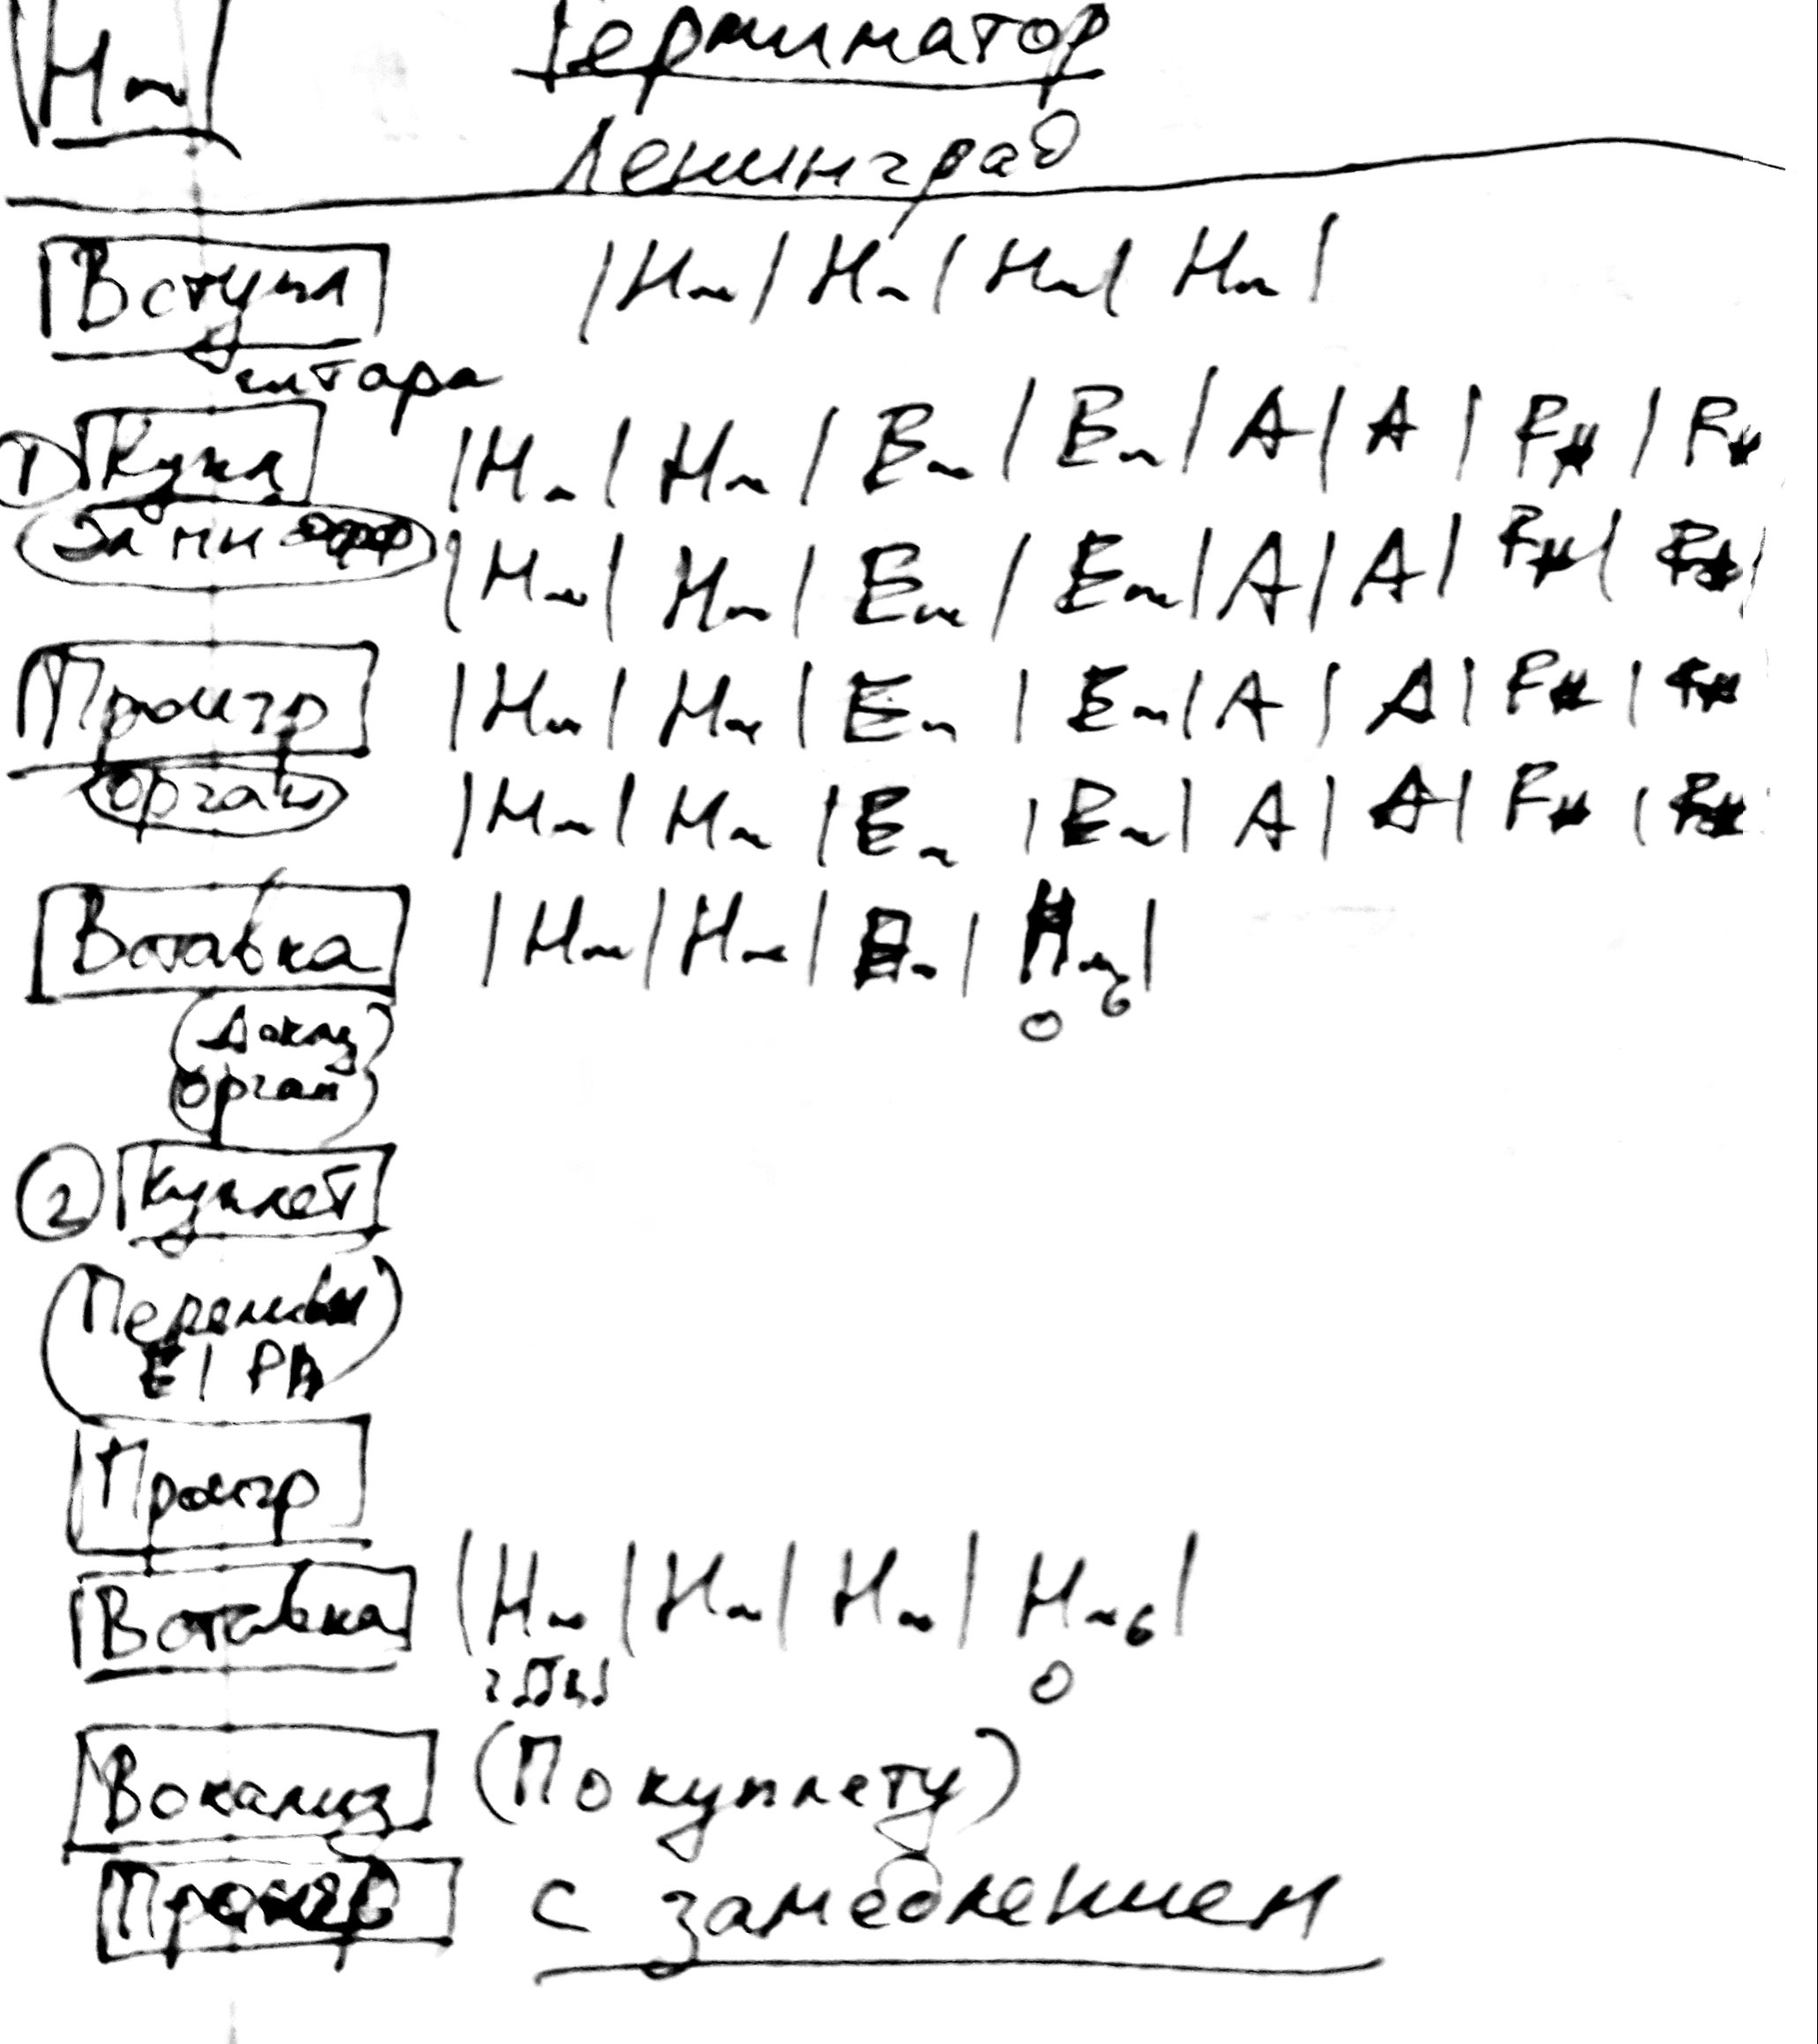 Hm Терминатор
Ленинград
Вступл |Hm|Hm|Hm|Hm|
гитара
① Купл |Hm|Hm|Em|Em|A|A|F#|F#
|Hm|Hm|Em|Em|A|A|F#|F#|
Проигр |Hm|Hm|Em|Em|A|A|F#|F#
орган |Hm|Hm|Em|Em|A|A|F#|F#
Вставка |Hm|Hm| |Hm6|
орган)
② Куплет
E|
Проигр
Вставка |Hm|Hm|Hm|Hm6|
Вокализ (По куплету)
Проигр с замедлением